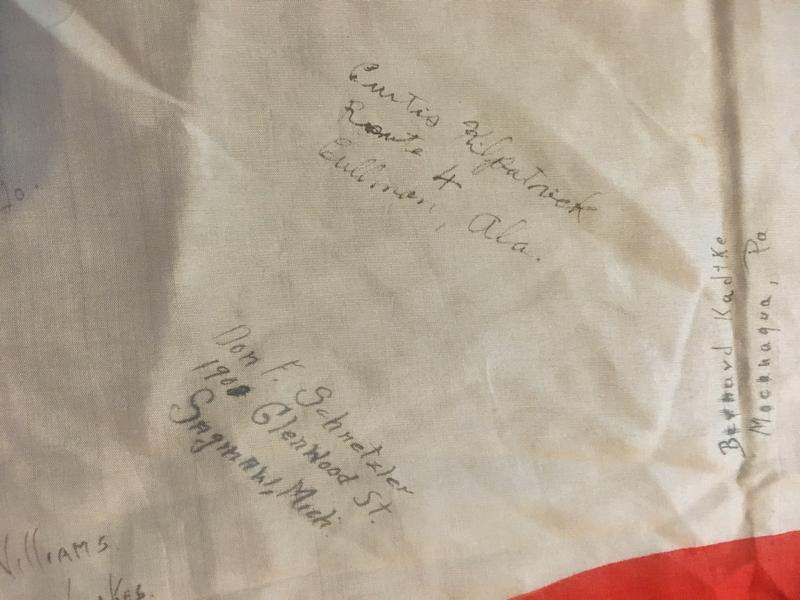 Curtis Kilpatrick
Route 4
Cullman, Ala.
Bernard Kadtke
Mocanaqua, Pa
Don F. Schnetzler
1900 Glenwood St.
Saginaw, Mich.
Williams